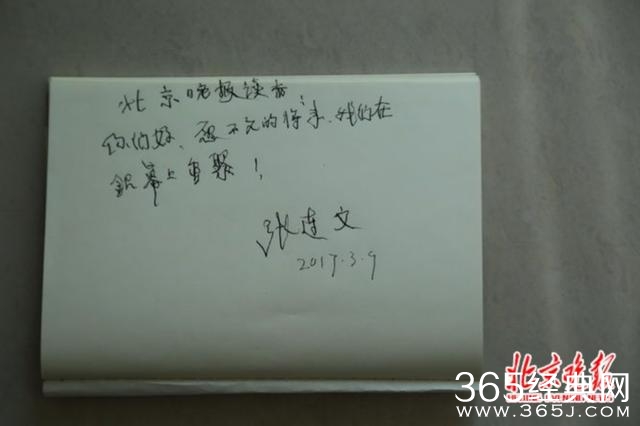 北京晚报读者：
你们好，愿不久的将来，我们在
銀幕上重聚！
张连文
2017.3.9
北京晚报
365经典网
www.365J.COM